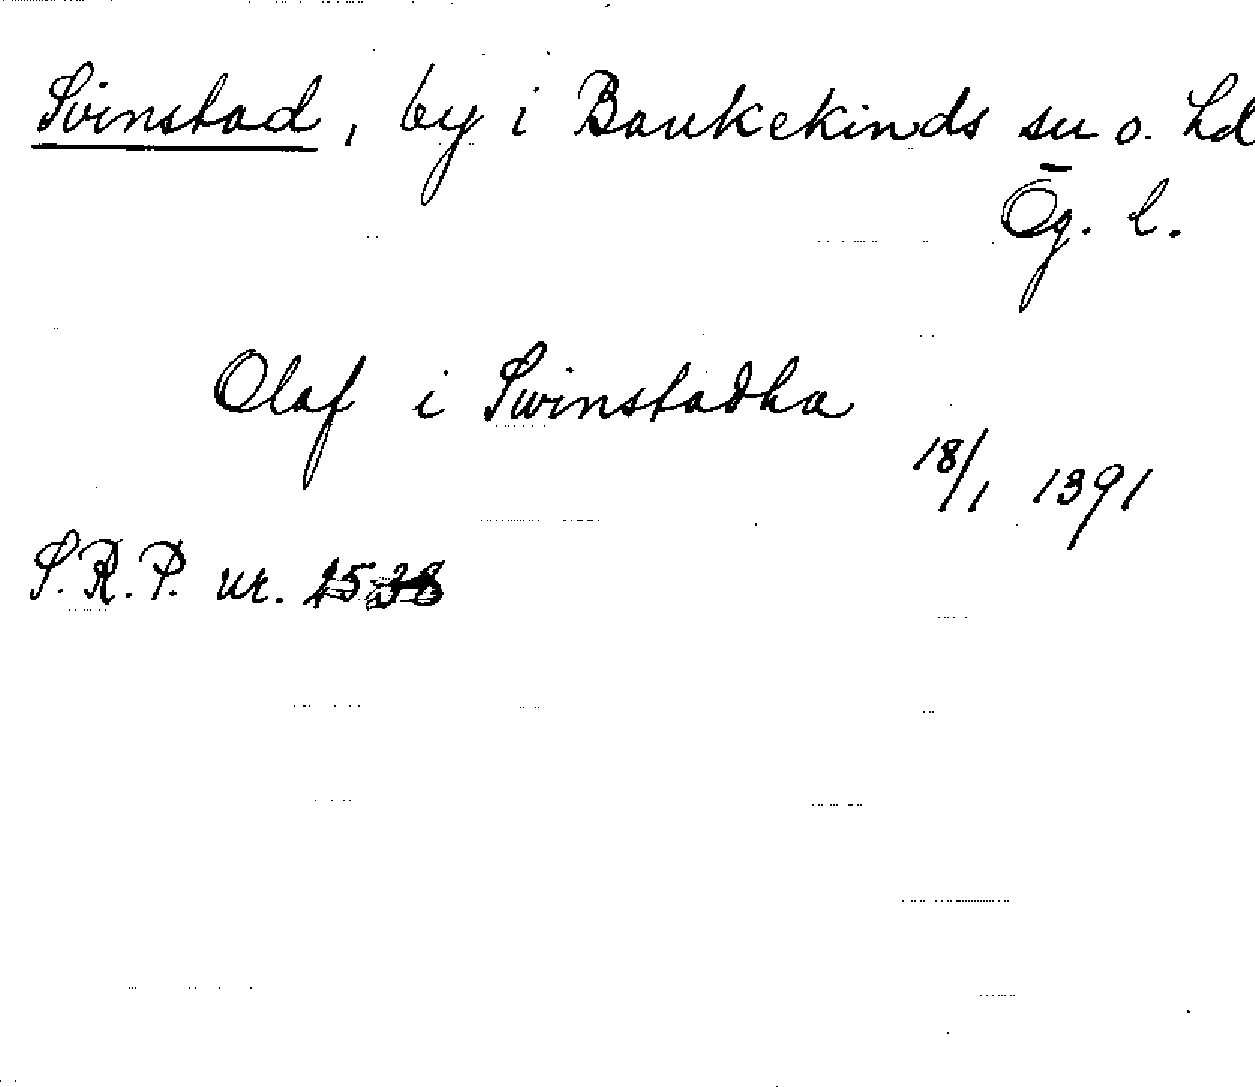 Svinstad, by i Bankekinds sn o. hd
Ög. l.
Olaf i Swinstadha
18/1 1391
S.R.P. nr. 2538